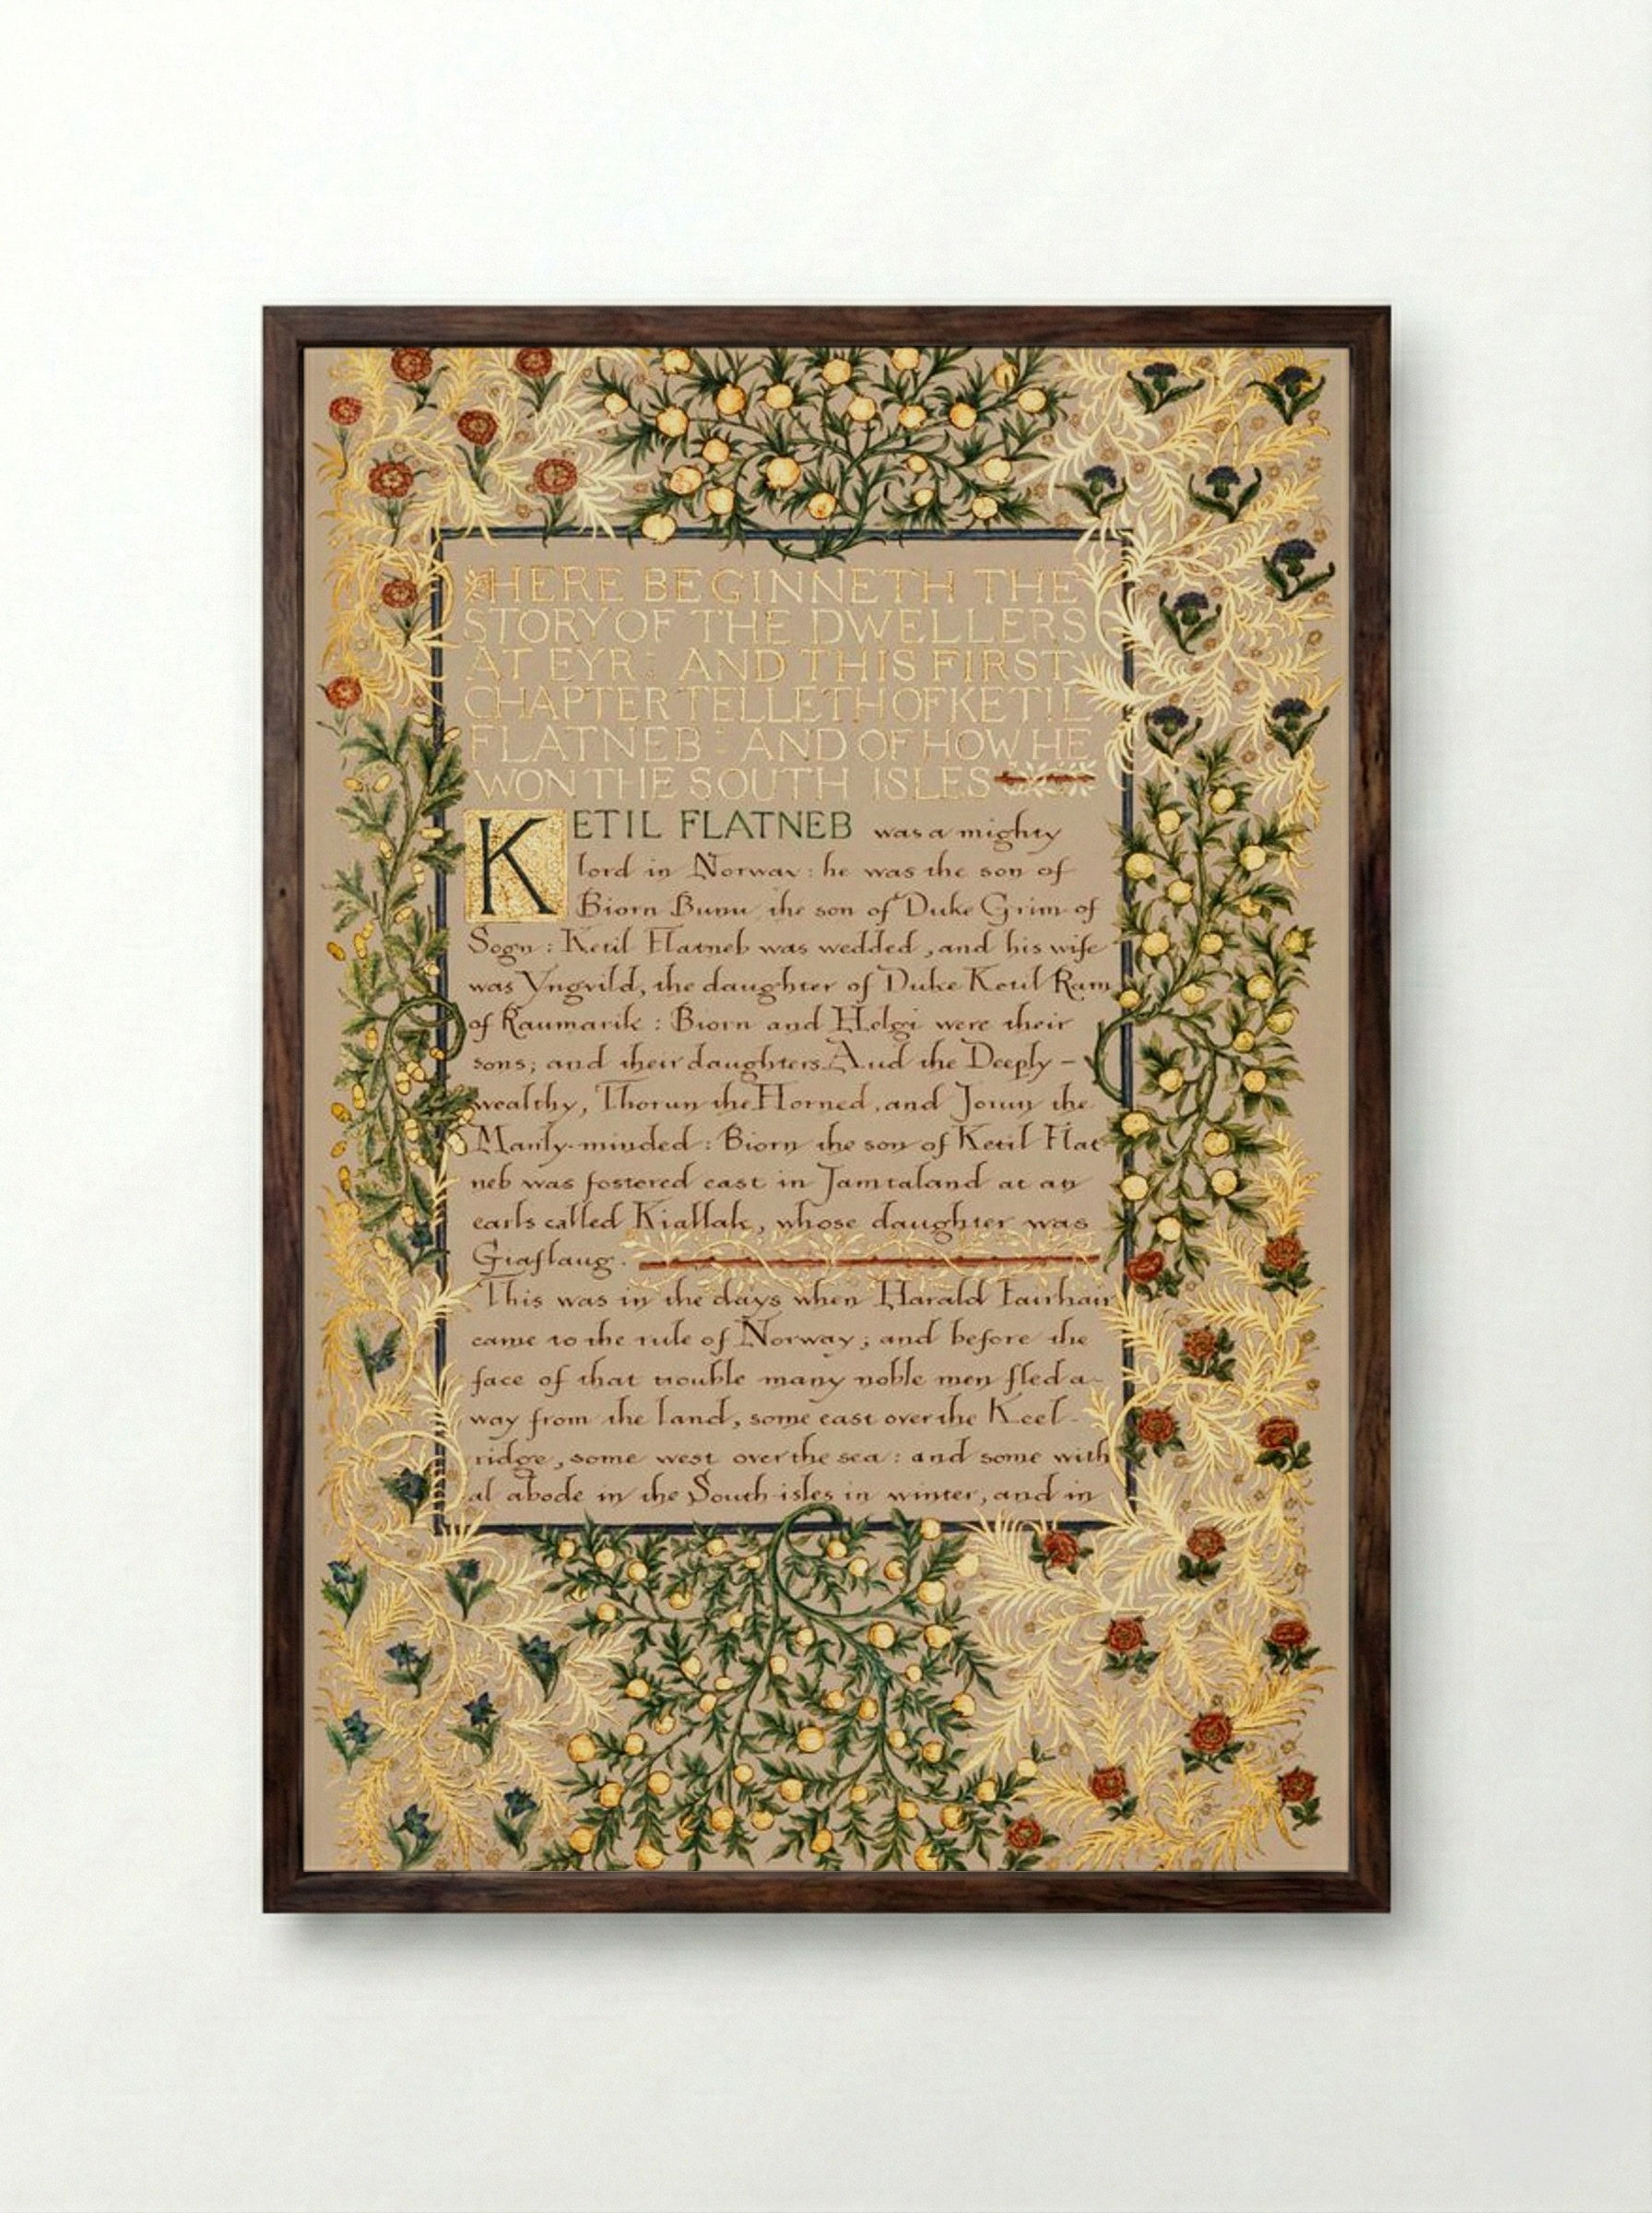 HERE BEGINNETH THE
STORY OF THE DWELLERS
AT EYR: AND THIS FIRST
CHAPTER TELLETH OF KETIL
FLATNEB: AND OF HOW HE
WON THE SOUTH ISLES
KETIL FLATNEB was a mighty
lord in Norway: he was the son of
Biorn Bunu the son of Duke Grim of
Sogn: Ketil Flatneb was wedded, and his wife
was Yngvild, the daughter of Duke Ketil Ram
of Raumarik: Biorn and Helgi were their
sons; and their daughters Aud the Deeply-
wealthy, Thorun the Horned, and Jorun the
Manly-minded: Biorn the son of Ketil Flat
neb was fostered east in Jamtaland at an
earls called Kiallak, whose daughter was
Giaflaug.
This was in the days when Harald Fairhair
came to the rule of Norway; and before the
face of that trouble many noble men fled a-
way from the land, some east over the Keel-
ridge, some west over the sea: and some with
al abode in the South-isles in winter, and in